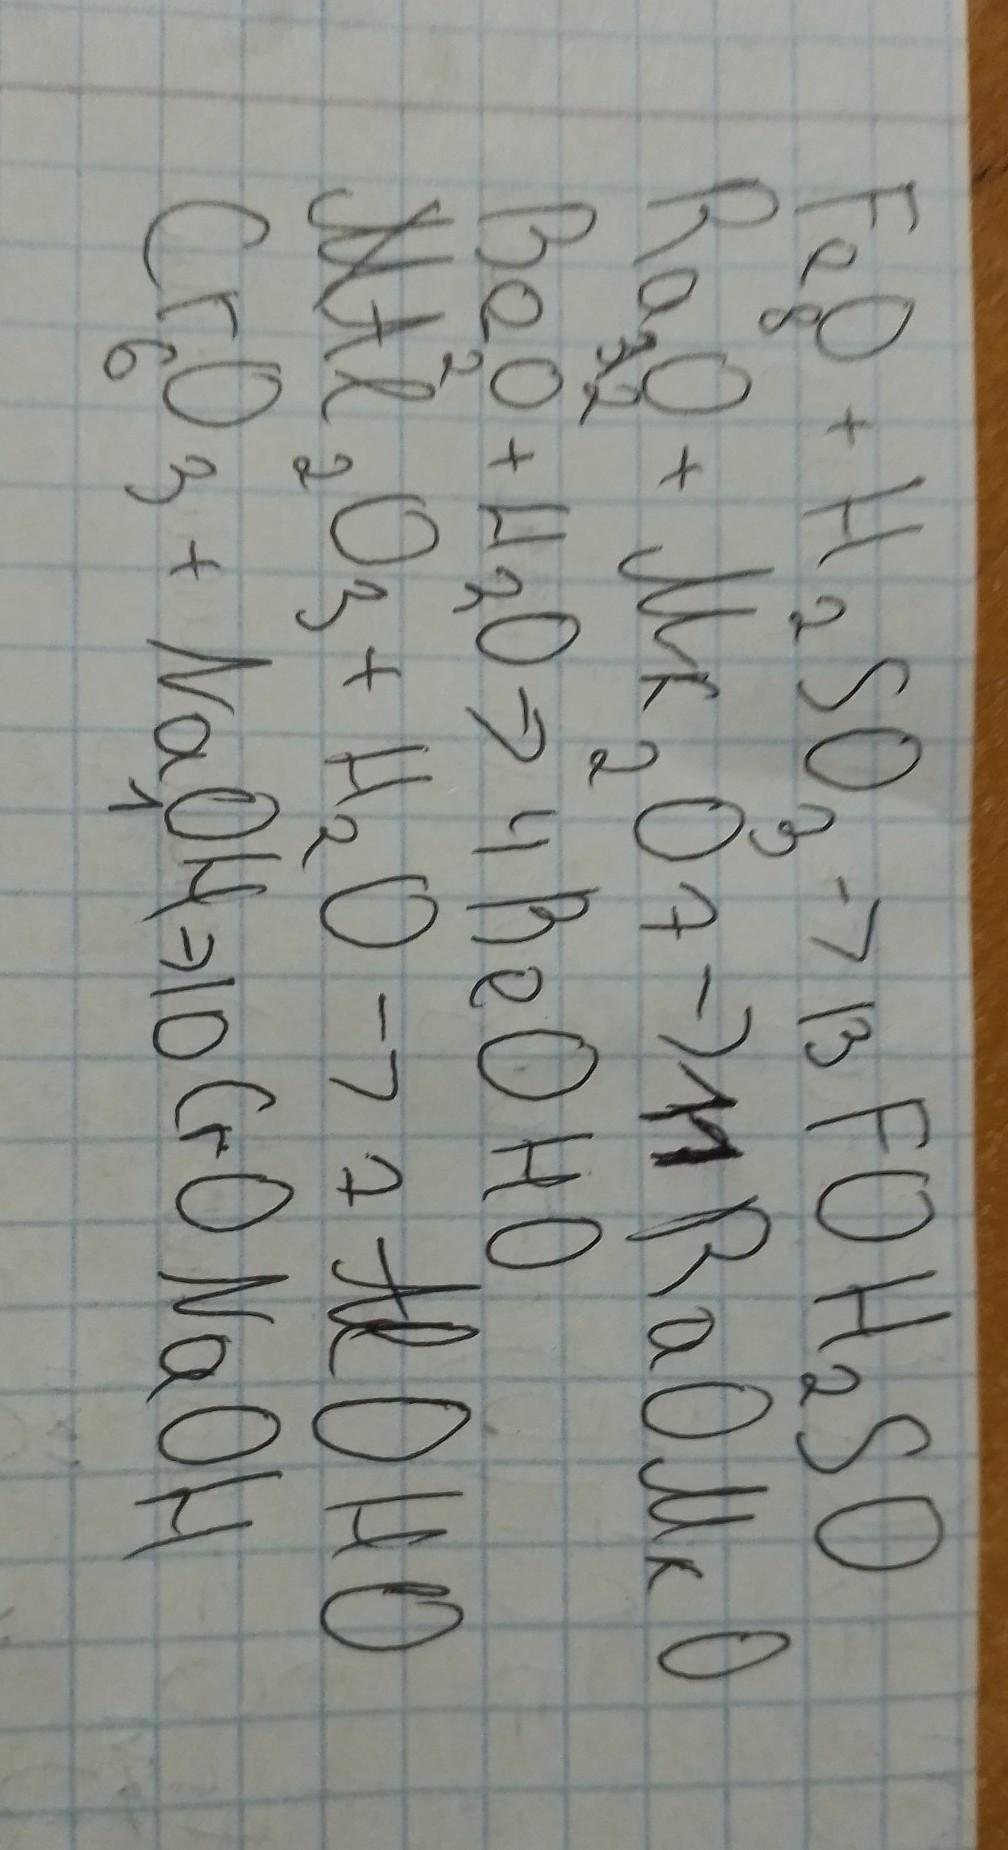 Fe₈O + H₂SO₃ -> 13 FOH₂SO
RaO + Mk₂O7 -> 11 RaOMkO
Be₂O + H₂O -> 4 BeOHO
Al₂O₃ + H₂O -> 7 AlOHO
Cr₆O₃ + Na₁OH -> 10 CrONaOH